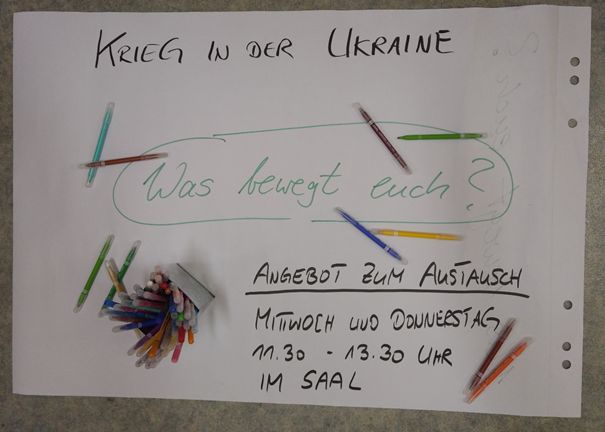 KRIEG IN DER UKRAINE
Was bewegt euch?
ANGEBOT ZUM AUSTAUSCH
MITTWOCH UND DONNERSTAG
11.30 - 13.30 UHR
IM SAAL